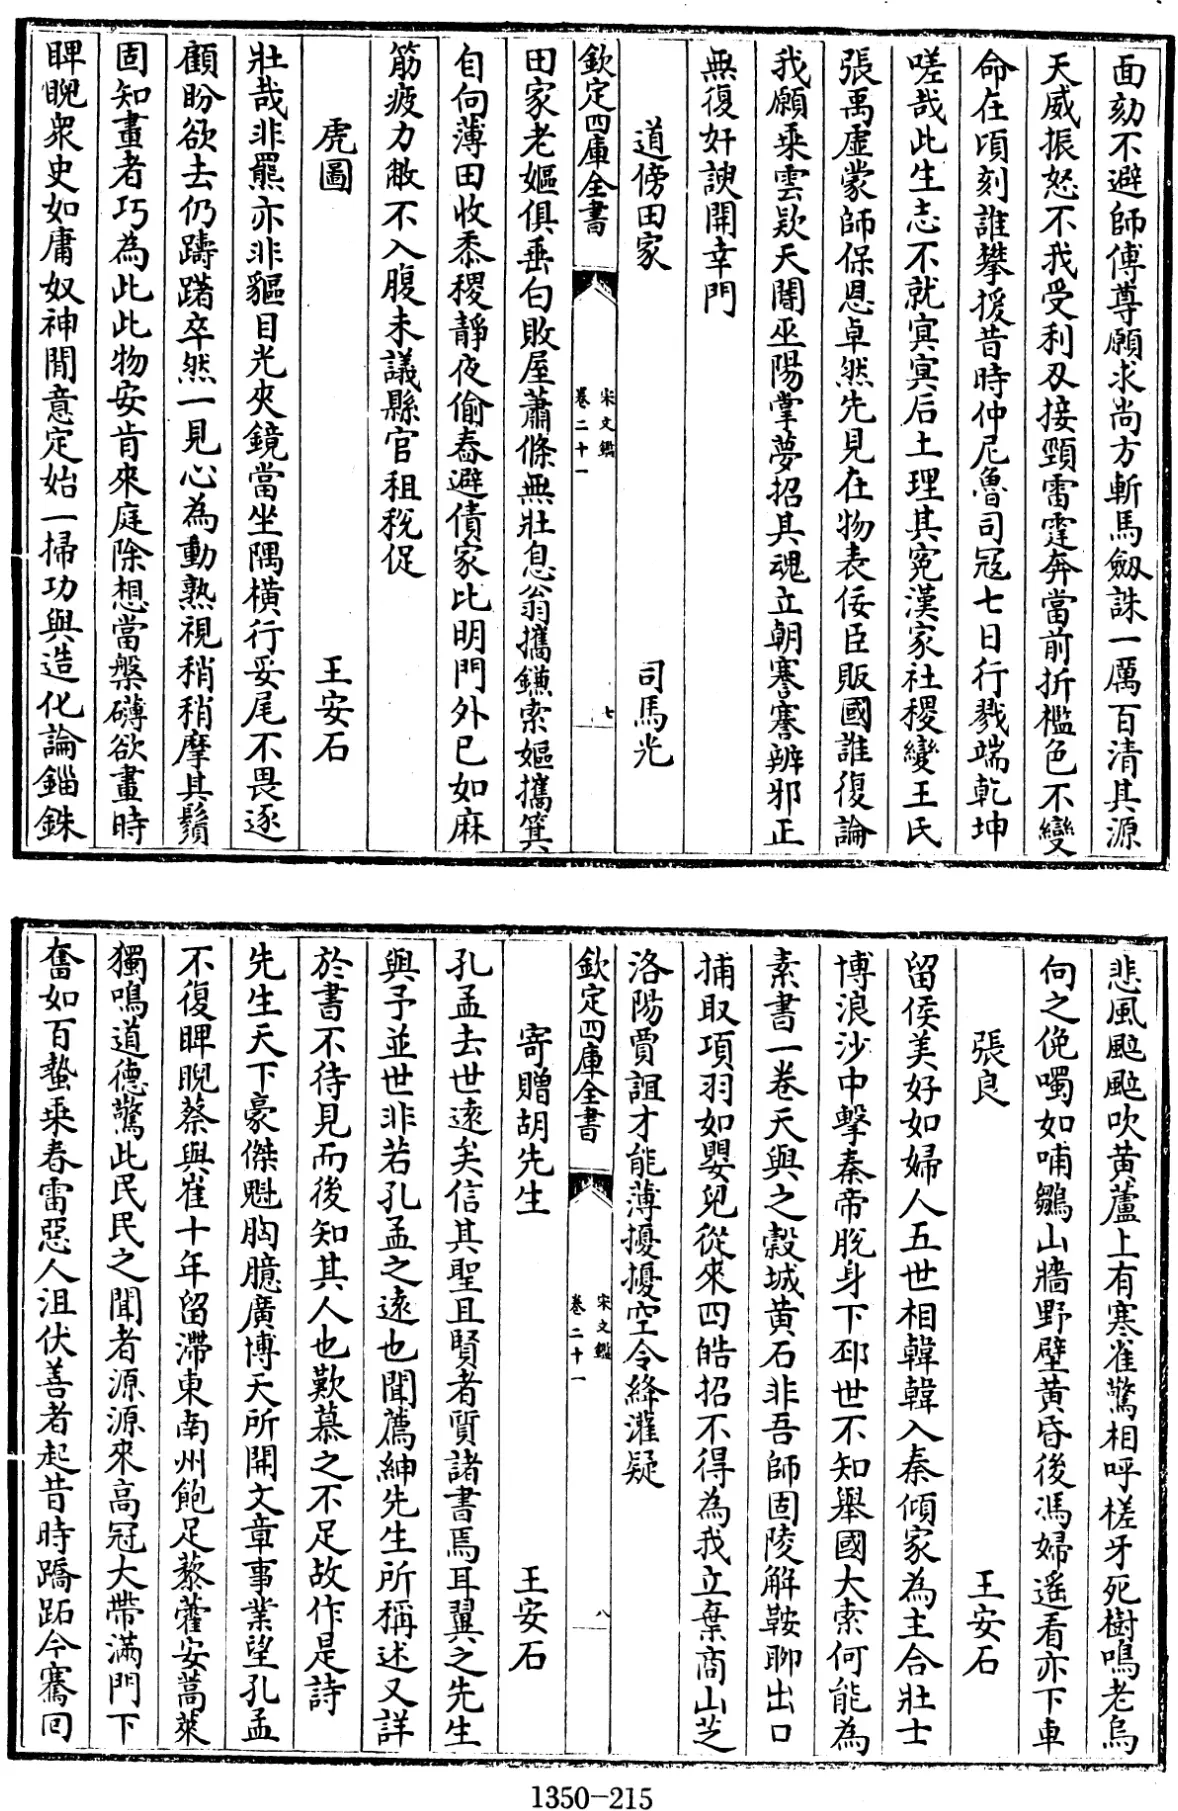 面劾不避師傅尊願求尚方斬馬劔誅一厲百清其源
天威振怒不我受利刄接頸雷霆奔當前折檻色不變
命在頃刻誰攀援昔時仲尼魯司冦七日行戮端乾坤
嗟哉此生志不就㝠㝠后土理其寃漢家社稷變王氏
張禹虚蒙師保恩卓然先見在物表佞臣販國誰復論
我願乗雲欵天閽巫陽掌夢招其魂立朝謇謇辨邪正
無復奸諛開幸門
道傍田家 司馬光
欽定四庫全書 宋文鑑 卷二十一 七
田家老嫗俱垂白敗屋蕭條無壯息翁攜鎌索嫗攜箕
自向薄田收黍稷靜夜偷舂避債家比明門外已如麻
筋疲力敝不入腹未議縣官租稅促
虎圖 王安石
壯哉非羆亦非貙目光夾鏡當坐隅橫行妥尾不畏逐
顧盼欲去仍躊躇卒然一見心為動熟視稍稍摩其鬚
固知畫者巧為此此物安肯來庭除想當槃礴欲畫時
睥睨衆史如庸奴神閒意定始一掃功與造化論錙銖
悲風颭颭吹黄蘆上有寒雀驚相呼槎牙死樹鳴老烏
向之俛噣如哺鶵山牆野壁黄昏後馮婦遙看亦下車
張良 王安石
留侯美好如婦人五世相韓韓入秦傾家為主合壯士
博浪沙中擊秦帝脫身下邳世不知舉國大索何能為
素書一卷天與之榖城黄石非吾師固陵解鞍聊出口
捕取項羽如嬰兒從來四皓招不得為我立棄商山芝
洛陽賈誼才能薄擾擾空令絳灌疑
欽定四庫全書 宋文鑑 卷二十一 八
寄贈胡先生 王安石
孔孟去世逺矣信其聖且賢者質諸書焉耳翼之先生
與予並世非若孔孟之逺也聞薦紳先生所稱述又詳
於書不待見而後知其人也歎慕之不足故作是詩
先生天下豪傑魁胸臆廣博天所開文章事業望孔孟
不復睥睨蔡與崔十年留滯東南州飽足藜藿安蒿萊
獨鳴道德驚此民民之聞者源源來高冠大帶滿門下
奮如百蟄乗春雷惡人沮伏善者起昔時蹻跖今騫回
1350-215